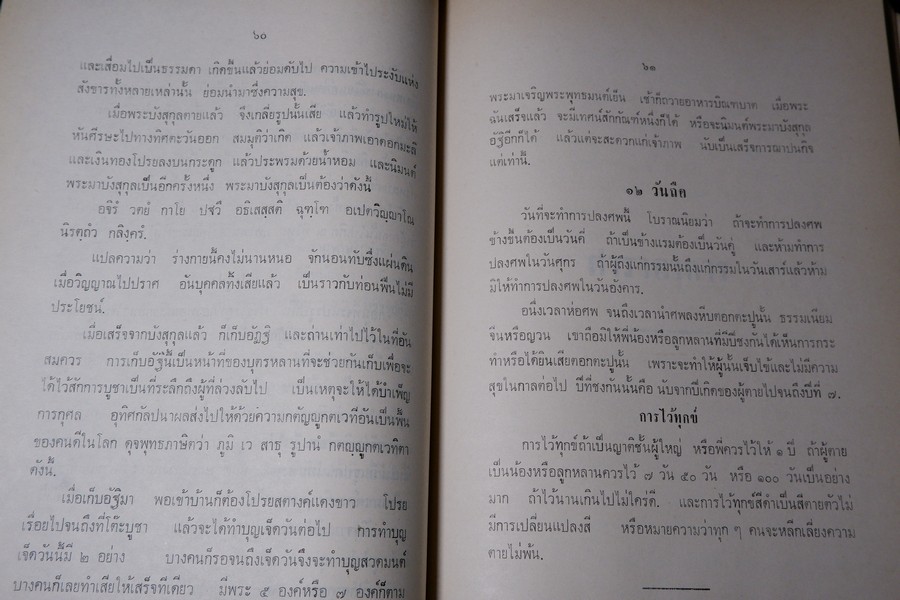 ๖๐
และเสื่อมไปเป็นธรรมดา เกิดขึ้นแล้วย่อมดับไป ความเข้าไประงับแห่ง
สังขารทั้งหลายเหล่านั้น ย่อมนำมาซึ่งความสุข.
เมื่อพระบังสุกุลตายแล้ว จึงเกลี่ยรูปนั้นเสีย แล้วทำรูปใหม่ให้
หันศีรษะไปทางทิศตะวันออก สมมุติว่าเกิด แล้วเจ้าภาพเอาดอกมะลิ
และเงินทองโปรยลงบนกระดูก แล้วประพรมด้วยน้ำหอม และนิมนต์
พระมาบังสุกุลเป็นอีกครั้งหนึ่ง พระมาบังสุกุลเป็นต้องว่าดังนี้
อจิรํ วตยํ กาโย ปฐวึ อธิเสสฺสติ ฉุฑฺโฑ อเปตวิญฺญาโณ
นิรตฺถํว กลิงฺครํ.
แปลความว่า ร่างกายนี้คงไม่นานหนอ จักนอนทับซึ่งแผ่นดิน
เมื่อวิญญาณไปปราศ อันบุคคลทิ้งเสียแล้ว เป็นราวกับท่อนฟืนไม่มี
ประโยชน์.
เมื่อเสร็จจากบังสุกุลแล้ว ก็เก็บอัฏฐิ และถ่านเท่าไปไว้ในที่อัน
สมควร การเก็บอัฐินี้เป็นหน้าที่ของบุตรหลานที่จะช่วยกันเก็บเพื่อจะ
ได้ไว้สักการบูชาเป็นที่ระลึกถึงผู้ที่ล่วงลับไป เป็นเหตุจะให้ได้บำเพ็ญ
การกุศล อุทิศกัลปนาผลส่งไปให้ด้วยความกตัญญูกตเวทีอันเป็นพื้น
ของคนดีในโลก ดุจพุทธภาษิตว่า ภูมิ เว สาธุ รูปานํ กตญฺญูกตเวทิตา
ดังนี้.
เมื่อเก็บอัฐิมา พอเข้าบ้านก็ต้องโปรยสตางค์แดงขาว โปรย
เรื่อยไปจนถึงที่โต๊ะบูชา แล้วจะได้ทำบุญเจ็ดวันต่อไป การทำบุญ
เจ็ดวันนี้มี ๒ อย่าง บางคนก็รอจนถึงเจ็ดวันจึงจะทำบุญสวดมนต์
บางคนก็เลยทำเสียให้เสร็จทีเดียว มีพระ ๕ องค์หรือ ๗ องค์ก็ตาม
๖๑
พระมาเจริญพระพุทธมนต์เย็น เช้าก็ถวายอาหารบิณฑบาต เมื่อพระ
ฉันเสร็จแล้ว จะมีเทศน์สักกัณฑ์หนึ่งก็ได้ หรือจะนิมนต์พระมาบังสุกุล
อัฐิอีกก็ได้ แล้วแต่จะสะดวกแก่เจ้าภาพ นับเป็นเสร็จการฌาปนกิจ
แต่เท่านี้.
๑๒ วันถือ
วันที่จะทำการปลงศพนี้ โบราณนิยมว่า ถ้าจะทำการปลงศพ
ข้างขึ้นต้องเป็นวันคี่ ถ้าเป็นข้างแรมต้องเป็นวันคู่ และห้ามทำการ
ปลงศพในวันศุกร ถ้าผู้ถึงแก่กรรมนั้นถึงแก่กรรมในวันเสาร์แล้วห้าม
มิให้ทำการปลงศพในวันอังคาร.
อนึ่งเวลาห่อศพ จนถึงเวลานำศพลงหีบตอกตะปูนั้น ธรรมเนียม
จีนหรือญวน เขาถือมิให้พี่น้องหรือลูกหลานที่มีปีชงกันได้เห็นการกระ
ทำหรือได้ยินเสียตอกตะปูนั้น เพราะจะทำให้ผู้นั้นเจ็บไข้และไม่มีความ
สุขในกาลต่อไป ปีที่ชงกันนั้นคือ นับจากปีเกิดของผู้ตายไปจนถึงปีที่ ๗.
การไว้ทุกข์
การไว้ทุกข์ถ้าเป็นญาติชั้นผู้ใหญ่ หรือพี่ควรไว้ให้ ๑ ปี ถ้าผู้ตาย
เป็นน้องหรือลูกหลานควรไว้ ๗ วัน ๕๐ วัน หรือ ๑๐๐ วันเป็นอย่าง
มาก ถ้าไว้นานเกินไปไม่ใคร่ดี. และการไว้ทุกข์สีดำเป็นสีตายตัวไม่
มีการเปลี่ยนแปลงสี หรือหมายความว่าทุก ๆ คนจะหลีกเลี่ยงความ
ตายไม่พ้น.